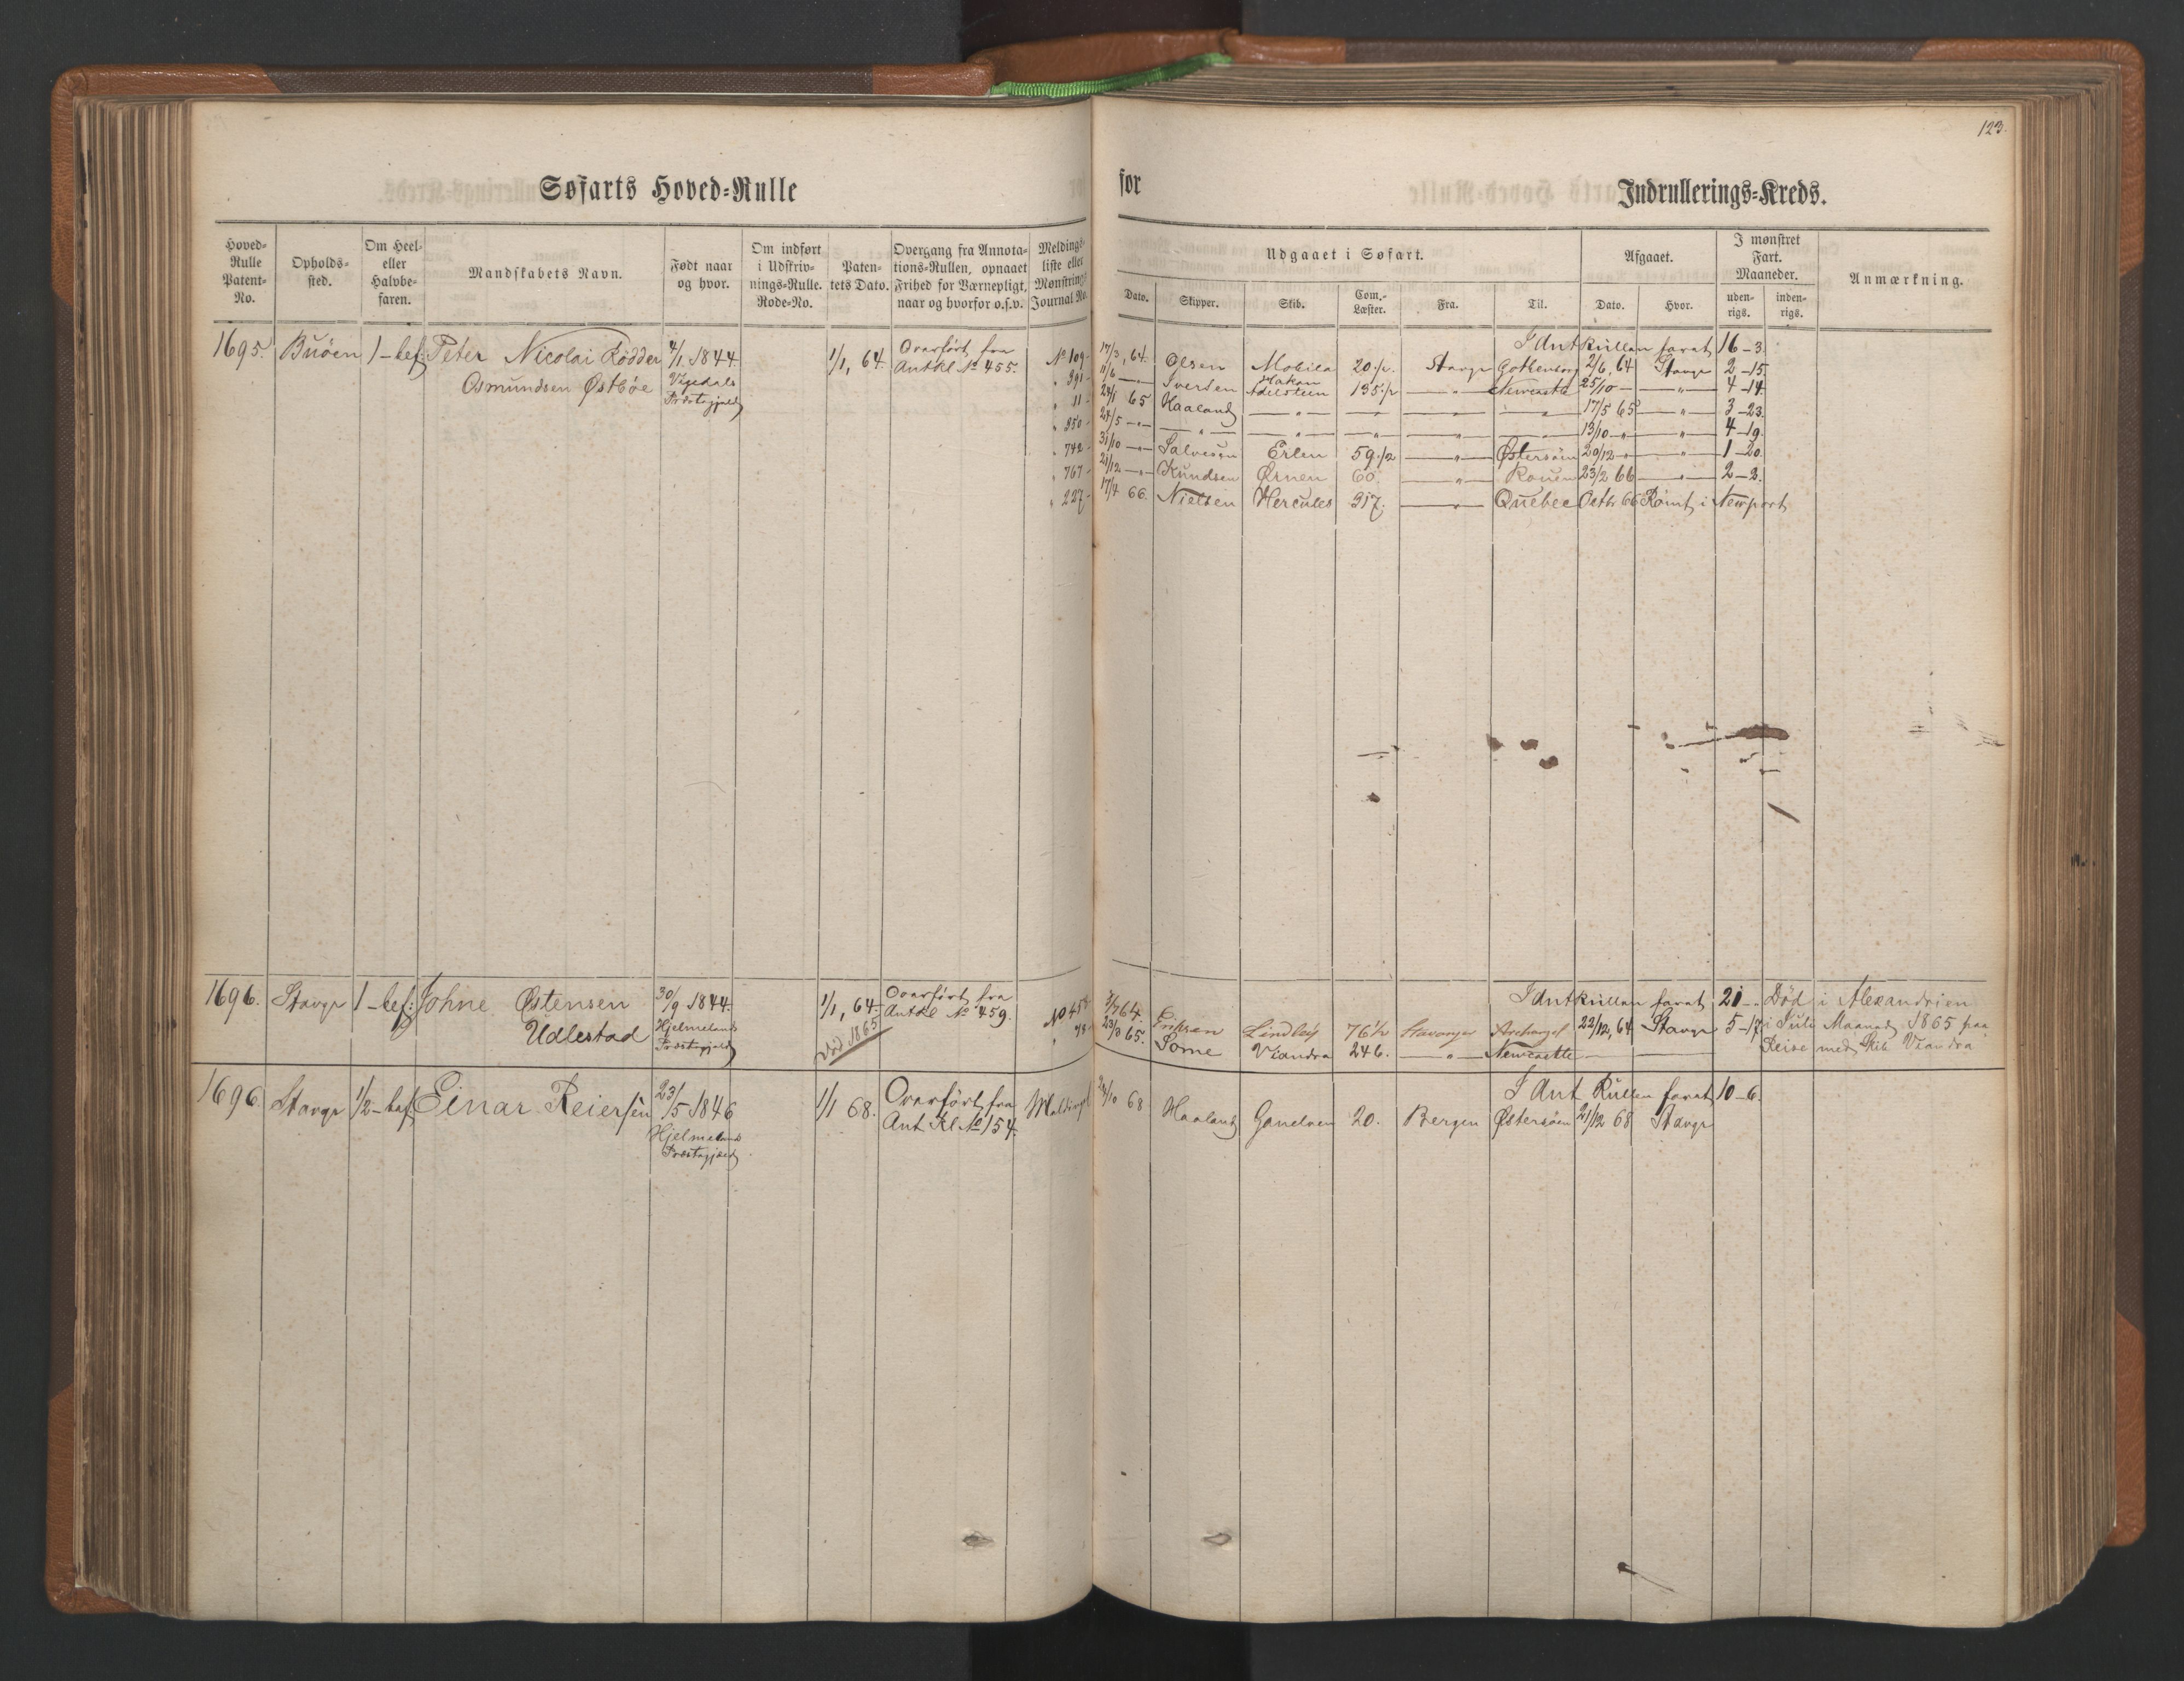 123.
Søfarts Hoved-Rulle
for
Indrullerings-Kreds.
Hoved-Rulle Patent-No.
Opholds-sted.
Om Heel- eller Halvbe-faren.
Mandskabets Navn.
Født naar og hvor.
Om indført i Udskriv-nings-Rulle. Rode-No.
Paten-tets Dato.
Overgang fra Annota-tions-Rullen, opnaaet Frihed for Værnepligt, naar og hvorfor o.s.v.
Meldings-liste eller Mønstrings Journal No.
Udgaaet i Søfart.
Dato.
Skipper.
Skib.
Com.-Læster.
Fra.
Til.
Afgaaet.
Dato.
Hvor.
I mønstret Fart. Maaneder.
uden-rigs.
inden-rigs.
Anmærkning.
1695. Buöen 1-bef: Peter Nicolai Rödder 4/1 1844. 1/1, 64. Overfört fra
Osmundsen Østböe Vigedals Antkl No 455.
Præstegjeld
I Antkrullen faret 16-3.
No 109- 17/3, 64. Olsen Mobila 20 1/2. Stavgr Gothenborg 2/6, 64 Stavgr 2-15.
" 391- 11/6 -"- Iversen Hakon Adelsteen 135 1/2 -"- Newcastle 25/10 - -"- 4-14.
" 11- 24/1 65 Haaland -"- -"- -"- -"- 17/5 65 -"- 3-23.
" 350- 24/5 -"- -"- -"- -"- -"- -"- 13/10 -"- -"- 4-19.
" 742- 31/10 -"- Salvesen Erlen 59 1/2 -"- Østersöen 20/12 -"- -"- 1-20.
" 767- 21/12 -"- Knudsen Ørnen 60. -"- Rouen 23/2 66 -"- 2-2.
" 227- 17/4 66. Nielsen Hercules 317. -"- Quebec Octb 66 Römt i Newport
1696. Stavgr 1-bef: Johne Østensen 30/9 1844. 1/1, 64. Overfört fra
Udlestad Hjelmelands död 1865 Antkl No 459.
Præstegjeld
I Antkrullen faret 21-. Död i Alexandrien
No 454 3/7 64. Eriksen Lindley 76 1/2 Stavanger Archangel 22/12, 64 Stavgr 5-17. i Juli Maaned 1865 paa
65. Sorne Viandra 246. -"- Newcastle - - Reise med Skib Viandra
1696. Stavgr 1/2-bef Einar Reiersen 23/5 1846 1/1 68. Overfört fra
Hjelmelands Ant Kl No 154.
Præstegjeld
I Ant Rullen faret 10-6.
Meldingsl 24/10 68 Haaland Ganelven 20. Bergen Østersöen 21/12 68 Stavgr